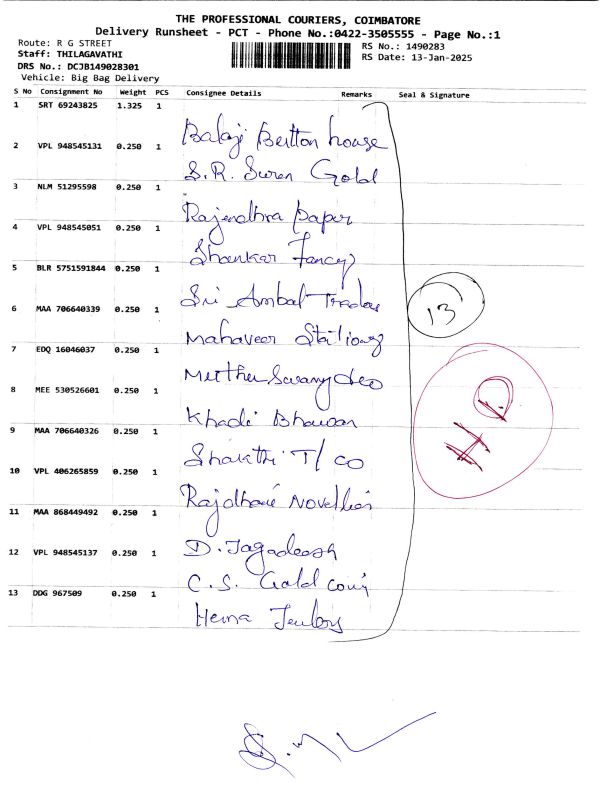 THE PROFESSIONAL COURIERS, COIMBATORE
Delivery Runsheet - PCT - Phone No.:0422-3505555 - Page No.:1
Route: R G STREET
Staff: THILAGAVATHI
DRS No.: DCJB149028301
Vehicle: Big Bag Delivery
RS No.: 1490283
RS Date: 13-Jan-2025
S No Consignment No Weight PCS Consignee Details Remarks Seal & Signature
1 SRT 69243825 1.325 1 Balaji Bertton house
2 VPL 948545131 0.250 1 S.R. Suren Gold
3 NLM 51295598 0.250 1 Rajendhra paper
4 VPL 948545051 0.250 1 Shankar Fancy
5 BLR 5751591844 0.250 1 Sri Ambal Traders
6 MAA 706640339 0.250 1 Mahaveer
7 EDQ 16046037 0.250 1
8 MEE 530526601 0.250 1 Khadi Bhavan
9 MAA 706640326 0.250 1 Shakthi T/co
10 VPL 406265859 0.250 1 Rajdhani Novelties
11 MAA 868449492 0.250 1 D. Jagadeesh
12 VPL 948545137 0.250 1 C.S. Gold
13 DDG 967509 0.250 1 Hema
13
H.O